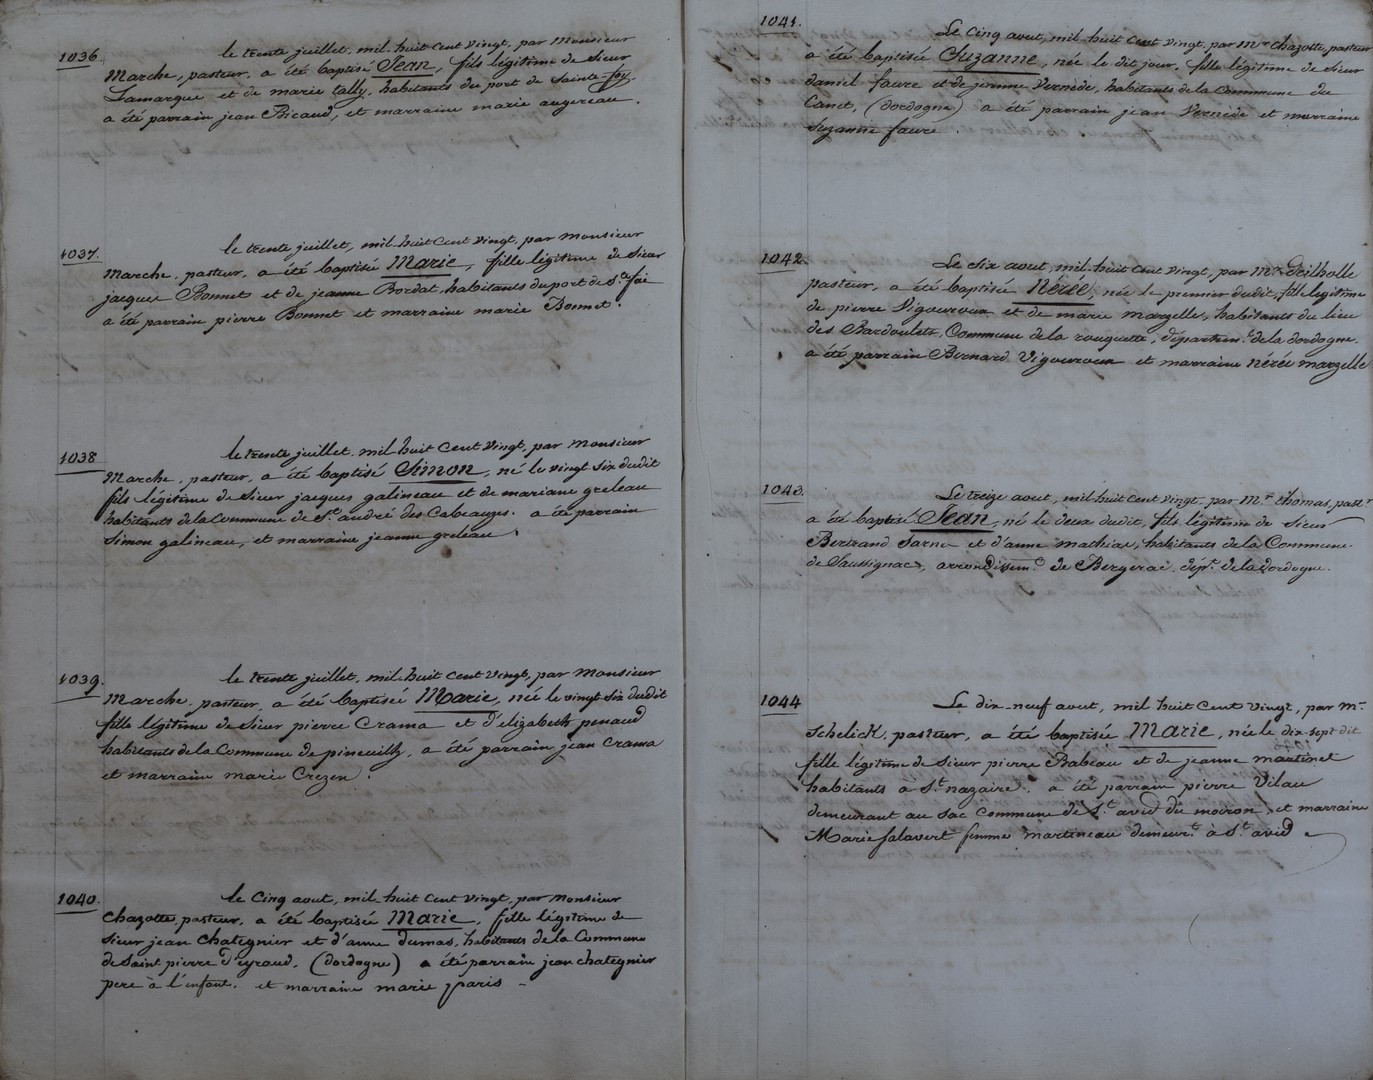 1036.
le trente juillet, mil huit Cent vingt, par Monsieur
Marche, pasteur, a été baptisé Jean, fils légitime de Sieur
Lamarque et de marie tally, habitants du port de Sainte-foy
a été parrain jean Ricaud, et marraine marie augereau.
1037.
le trente juillet, mil huit Cent vingt, par Monsieur
Marche, pasteur, a été baptisé Marie, fille légitime de Sieur
jacques Bonnet et de jeanne Bordat, habitants du port de Ste foi
a été parrain pierre Bonnet et marraine marie Bonnet.
1038
le trente juillet, mil huit Cent vingt, par Monsieur
Marche, pasteur, a été baptisé Simon, né le vingt six dudit
fils légitime de Sieur jacques galineau et de mariane greleau
habitants de la Commune de St andré des Cabeauzes. a été parrain
Simon galineau, et marraine jeanne greleau.
1039.
le trente juillet, mil huit Cent vingt, par Monsieur
Marche, pasteur, a été baptisée Marie, née le vingt six dudit
fille légitime de Sieur pierre Crama et d'elizabeth penaud
habitants de la Commune de pineuilh, a été parrain jean Crama
et marraine marie Crezen.
1040.
le Cinq aout, mil huit Cent vingt, par Monsieur
Chazotte, pasteur, a été baptisée Marie, fille légitime de
Sieur jean Chategnier et d'anne dumas, habitants de la Commune
de Saint pierre d'eyraud, (dordogne) a été parrain jean chategnier
pere à l'enfant. et marraine marie paris
1041.
Le Cinq aout, mil huit Cent vingt, par Mr Chazotte, pasteur
a été baptisé Suzanne, née le dit jour, fille légitime de Sieur
daniel faure et de jemme Vernède, habitants de la Commune de
Canet, (dordogne) a été parrain jean Vernède et marraine
Suzanne faure.
1042.
Le Six aout, mil huit Cent vingt, par Mr Grilholle
pasteur, a été baptisée Nérée, née le premier dudit, fille légitime
de pierre Vigouroux et de marie marzelle, habitants du lieu
des Bardoulets, Commune de la rouquette, départemt de la dordogne.
a été parrain Bernard Vigouroux et marraine Nérée marzelle
1043.
Le treize aout, mil huit Cent vingt, par Mr thomas, pastr
a été baptisé Jean, né le deux dudit, fils légitime de Sieur
Bertrand Sarne et d'anne mathias, habitants de la Commune
de Saussignac, arrondissemt de Bergerac, dépt de la dordogne.
1044
Le dix-neuf aout, mil huit Cent vingt, par mr
Schelick, pasteur, a été baptisée Marie, née le dix sept dit
fille légitime de Sieur pierre Babeau et de jeanne martinet
habitants à St nazaire. a été parrain pierre Vilau
demeurant au Sac commune de St avid du moiron, et marraine
Marie Salavert femme martineau demeurt à St avid